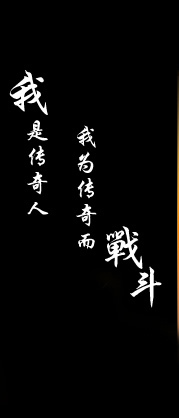 我是传奇人
我为传奇而戰斗